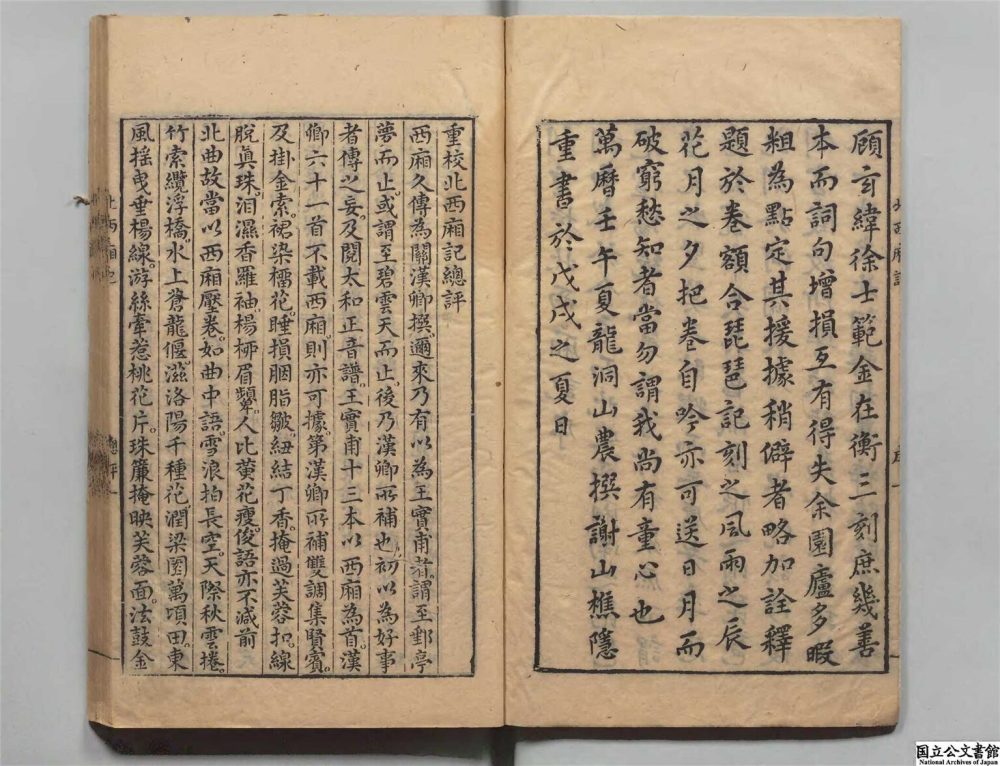 顧玄緯徐士範金在衡三刻庶幾善
本而詞句增損互有得失余園廬多暇
粗為點定其援據稍僻者略加詮釋
題於卷額合琵琶記刻之風雨之辰
花月之夕把卷自吟亦可送日月而
破窮愁知者當勿謂我尚有童心也
萬曆壬午夏龍洞山農撰謝山樵隱
重書於戊戌之夏日
重校北西廂記總評
西廂久傳為關漢卿撰。邇來乃有以為王實甫者。謂至郵亭
夢而止。或謂至碧雲天而止。後乃漢卿所補也。初以為好事
者傳之妄。及閱太和正音譜。王實甫十三本。以西廂為首。漢
卿六十一首不載西廂。則亦可據。第漢卿所補雙調集賢賓。
及掛金索。裙染榴花。睡損胭脂皺。紐結丁香。掩過芙蓉扣。線
脫眞珠。泪濕香羅袖。楊柳眉顰。人比黃花瘦。俊語亦不減前
北曲故當以西廂壓卷。如曲中語。雪浪拍長空。天際秋雲捲。
竹索纜浮橋。水上蒼龍偃。滋洛陽千種花。潤梁園萬頃田。東
風搖曳垂楊線。游絲牽惹桃花片。珠簾掩映芙蓉面。法鼓金
国立公文書館
National Archives of Japan